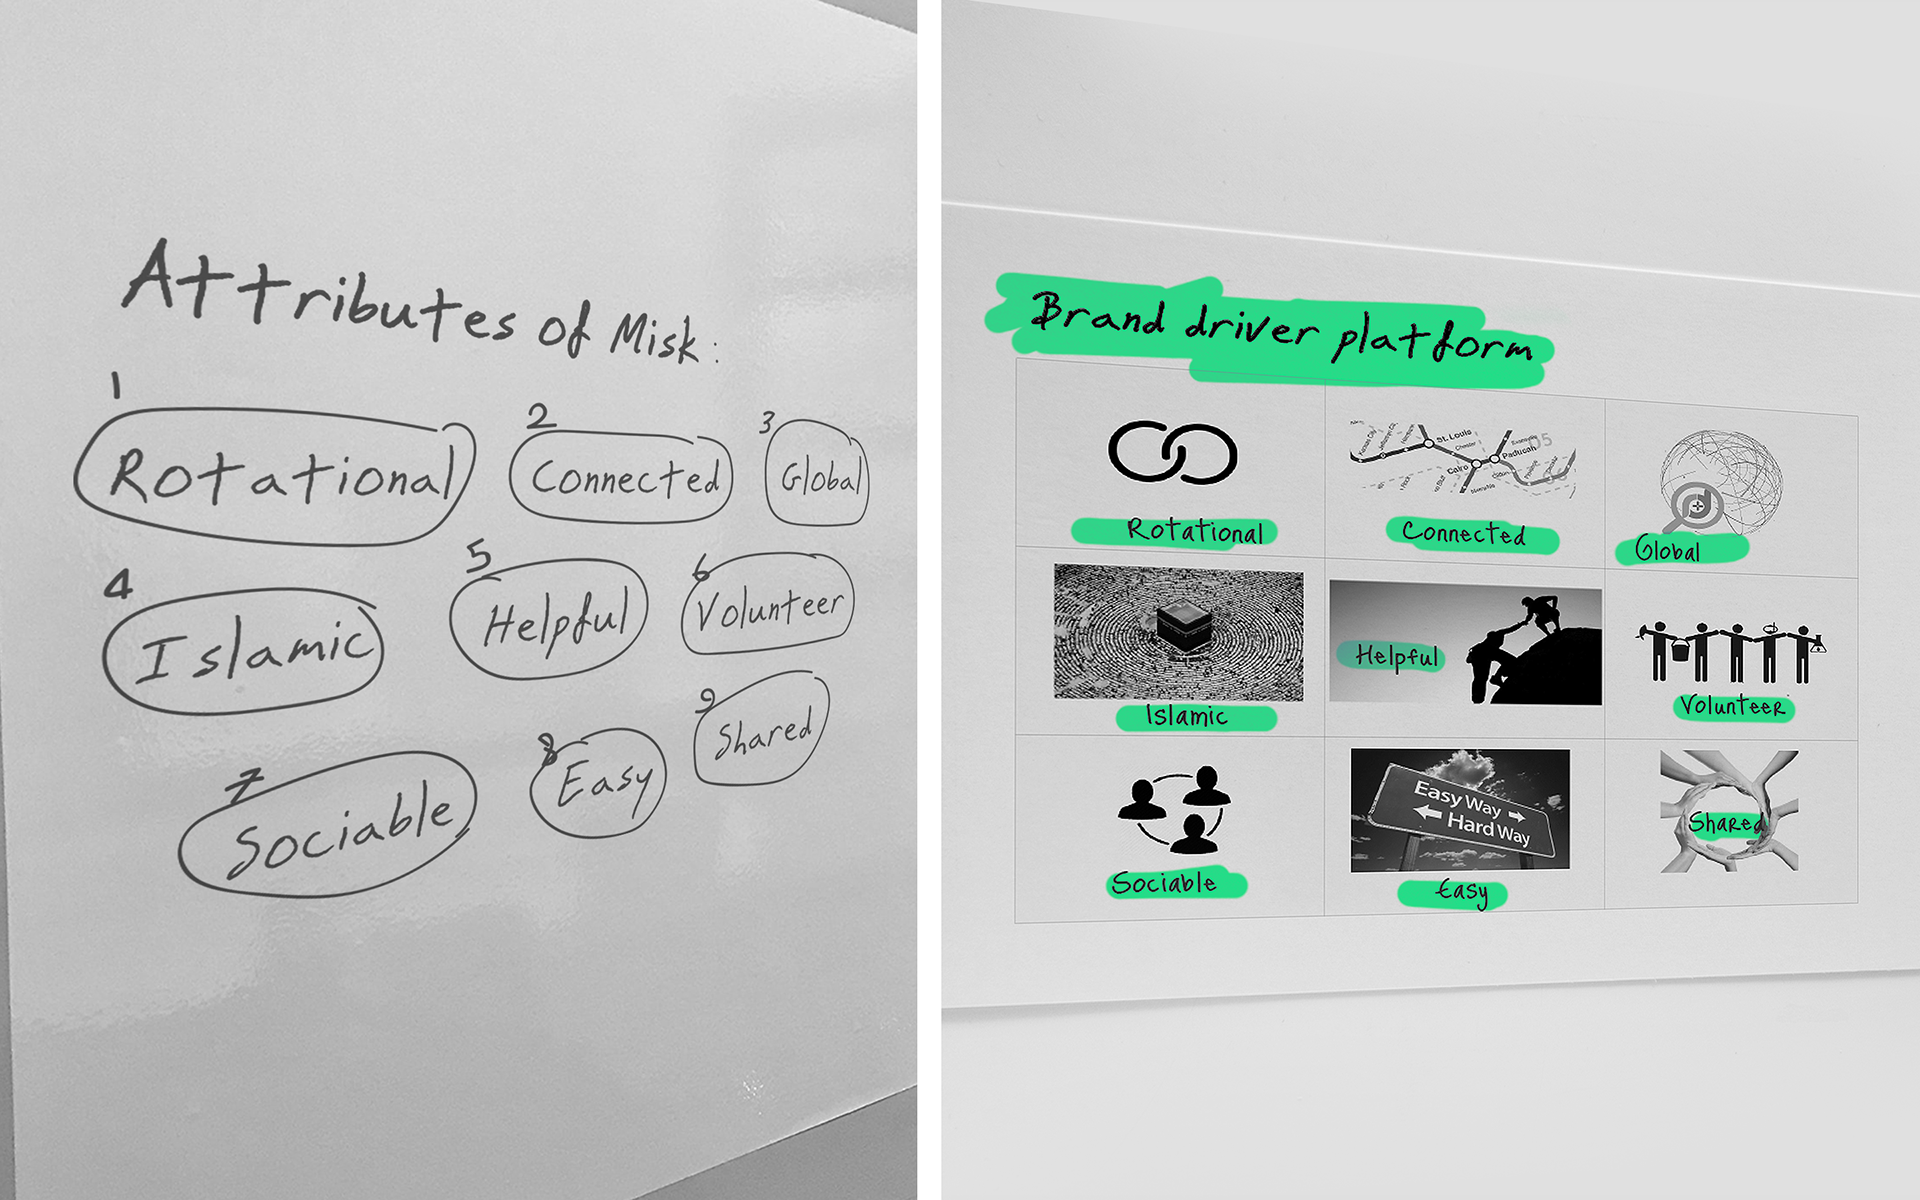 Attributes of Misk:
1
Rotational
2
Connected
3
Global
4
Islamic
5
Helpful
6
Volunteer
7
Sociable
8
Easy
9
Shared
Brand driver platform
St. Louis
Cairo
Paducah
05
Rotational
Connected
Global
Islamic
Helpful
Volunteer
Easy Way
Hard Way
Sociable
Easy
Shared